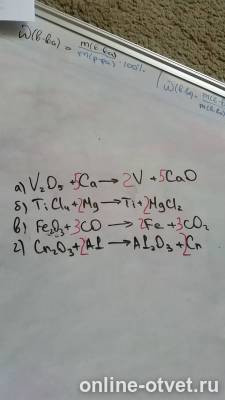 ω̃(в-ва) = m(в-ва) / m(р-ра) · 100%
а) V₂O₅ + 5Ca → 2V + 5CaO
б) TiCl₄ + 2Mg → Ti + 2MgCl₂
в) Fe₂O₃ + 3CO → 2Fe + 3CO₂
г) Cr₂O₃ + 2Al → Al₂O₃ + 2Cr
online-otvet.ru